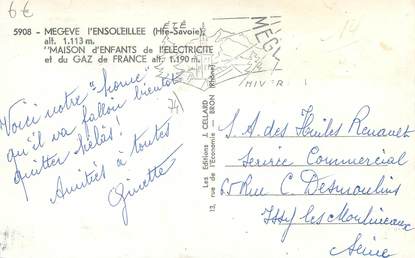 6€
5908 - MEGEVE l'ENSOLEILLEE (Hte-Savoie)
alt. 1.113 m.
"MAISON d'ENFANTS de l'ELECTRICITE
et du GAZ de FRANCE alt. 1.190 m.
ÉTÉ
MEGÈV
HIVER
Voici notre "home"
qu'il va falloir bientôt
quitter hélas!
Amitiés à toutes
Ginette
74
Les Editions J. CELLARD
13, rue de l'Economie - BRON (Rhône)
S.A. des Huiles Renault
Service Commercial
65 Rue C. Desmoulins
Issy les Moulineaux
Seine